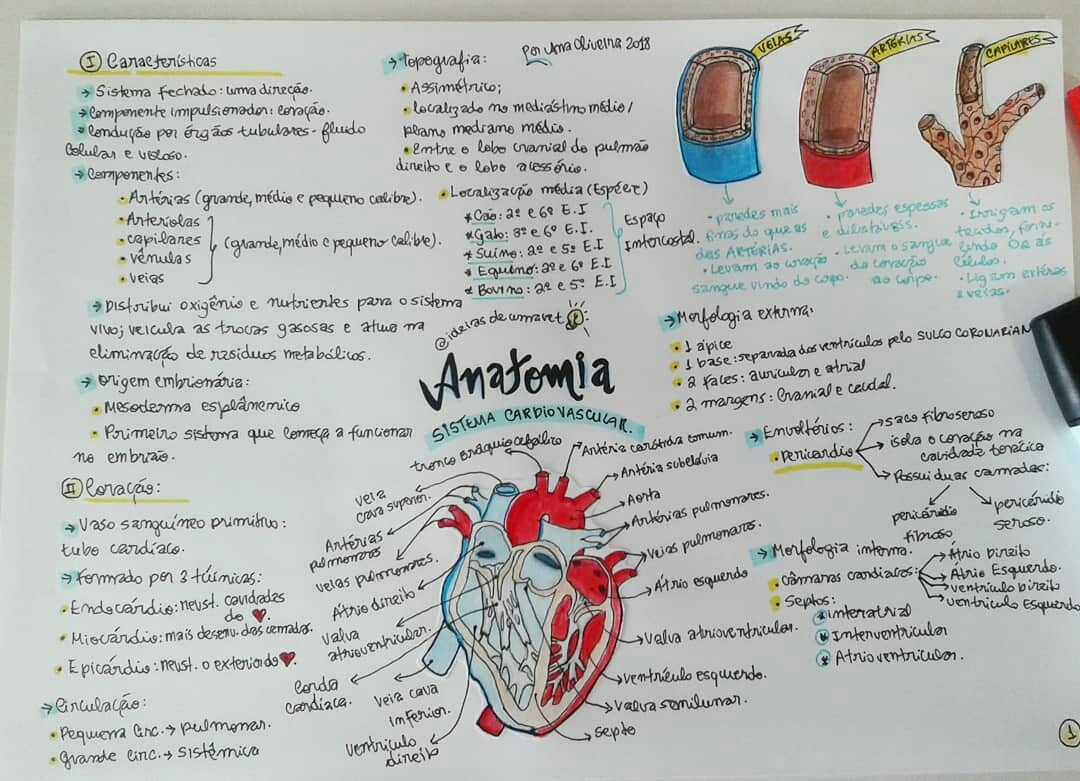 Por Ana Oliveira 2018
I Características
→ Sistema fechado: uma direção.
→ Componente impulsionador: coração.
→ Condução por órgãos tubulares - fluido
celular e viscoso.
→ Componentes:
• Artérias (grande, médio e pequeno calibre).
• Arteríolas
• capilares
• vênulas
• veias
(grande, médio e pequeno calibre).
→ Distribui oxigênio e nutrientes para o sistema
vivo; veicula as trocas gasosas e atua na
eliminação de resíduos metabólicos.
→ Origem embrionária:
• Mesoderma esplâncnico
• Primeiro sistema que começa a funcionar
no embrião.
→ Topografia:
• Assimétrico;
• Localizado no mediastino médio/
plano mediano médio.
• Entre o lobo cranial do pulmão
direito e o lobo acessório.
• Localização média (Espécie)
* Cão: 2º e 6º E.I
* Gato: 3º e 6º E.I.
* Suíno: 2º e 5º E.I
* Equino: 2º e 6º E.I
* Bovino: 2º e 5º E.I
Espaço
Intercostal.
VEIAS
ARTÉRIAS
CAPILARES
• paredes mais
finas do que as
das ARTÉRIAS.
• Levam ao coração
sangue vindo do corpo.
• paredes espessas
e dilatáveis.
• Levam o sangue
do coração
ao corpo.
• Irrigam os
tecidos, forne-
cendo O2 às
células.
• Ligam artérias
e veias.
@ideias de umavet
Anatomia
SISTEMA CARDIOVASCULAR.
→ Morfologia externa:
• 1 ápice
• 1 base: separada dos ventrículos pelo SULCO CORONARIAN
• 2 faces: auricular e atrial
• 2 margens: Cranial e caudal.
→ Envoltórios:
• Pericardio
saco fibroseroso
isola o coração na
cavidade torácica
Possui duas camadas:
pericárdio
fibroso
pericárdio
seroso.
→ Morfologia interna:
• câmaras cardíacas:
Átrio Direito
Átrio Esquerdo.
ventrículo Direito
ventrículo Esquerdo
• Septos:
* interatrial
* Interventricular
* Atrioventricular.
II Coração:
→ Vaso sanguíneo primitivo:
tubo cardíaco.
→ Formado por 3 túnicas:
• Endocárdio: revest. cavidades
do ♥.
• Miocárdio: mais desenv. das camadas.
• Epicárdio: revest. o exterior do ♥.
→ Circulação:
• Pequena Circ. → pulmonar.
• Grande circ. → sistêmica
tronco braquiocefálico
veia
cava superior.
Artérias
pulmonares
veias pulmonares.
Átrio direito
valva
atrioventricular.
Corda
cardíaca.
veia cava
inferior.
ventrículo
direito
Artéria carótida comum.
Artéria subclávia
Aorta
Artérias pulmonares.
veias pulmonares.
Átrio esquerdo
Valva atrioventricular.
ventrículo esquerdo.
Valva semilunar.
septo
1